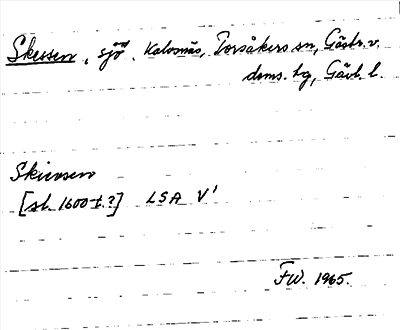 Skessen, sjö, Kalvsnäs, Torsåkers sn, Gästr. v.
doms. hg, Gävl. l.
Skinsen
[sl. 1600-t.?] LSA V1
FW. 1965.